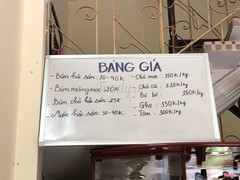 BẢNG GIÁ
- Bún hải sản: 30-40K
- Bún măng mọc: 20K
- Bún chả hải sản: 25K
- Miến hải sản: 30-40K
- Chả mực: 350K/kg
- Chả cá: 220K/kg
350K/kg
- Ghẹ: 350K/kg
- Tôm: 300K/kg